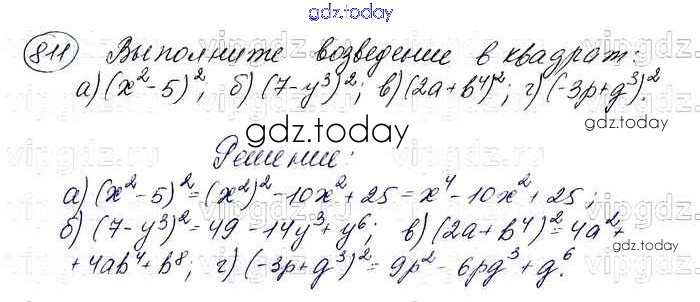 gdz.today
811 Выполните возведение в квадрат:
а) (x² - 5)²; б) (7 - y³)²; в) (2a + b⁴)²; г) (-3p + q³)².
gdz.today
gdz.today
Решение:
а) (x² - 5)² = (x²)² - 10x² + 25 = x⁴ - 10x² + 25;
б) (7 - y³)² = 49 - 14y³ + y⁶; в) (2a + b⁴)² = 4a² +
gdz.today
+ 4ab⁴ + b⁸; г) (-3p + q³)² = 9p² - 6pq³ + q⁶.
gdz.today